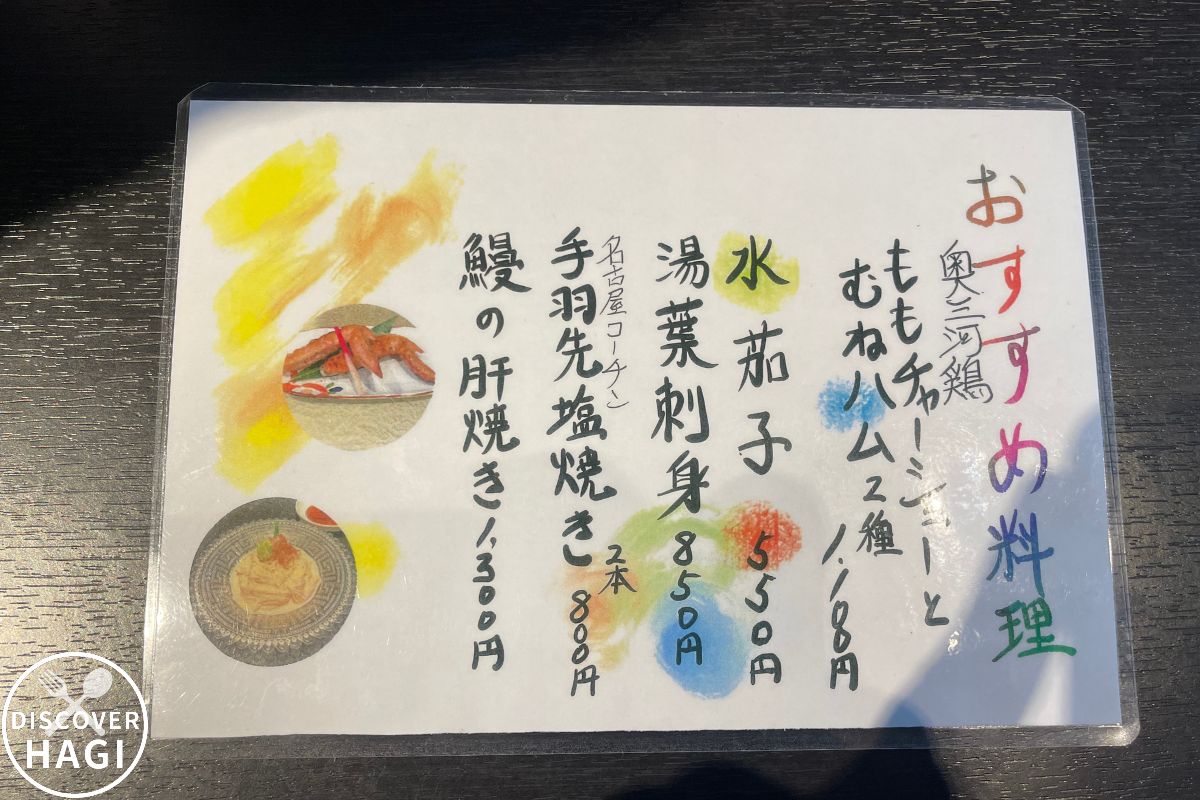 おすすめ料理
奥三河鶏
ももチャーシューと
むねハム2種
1,100円
水茄子 550円
湯葉刺身 850円
名古屋コーチン
手羽先塩焼き 2本 800円
鰻の肝焼き 1,300円
DISCOVER
HAGI